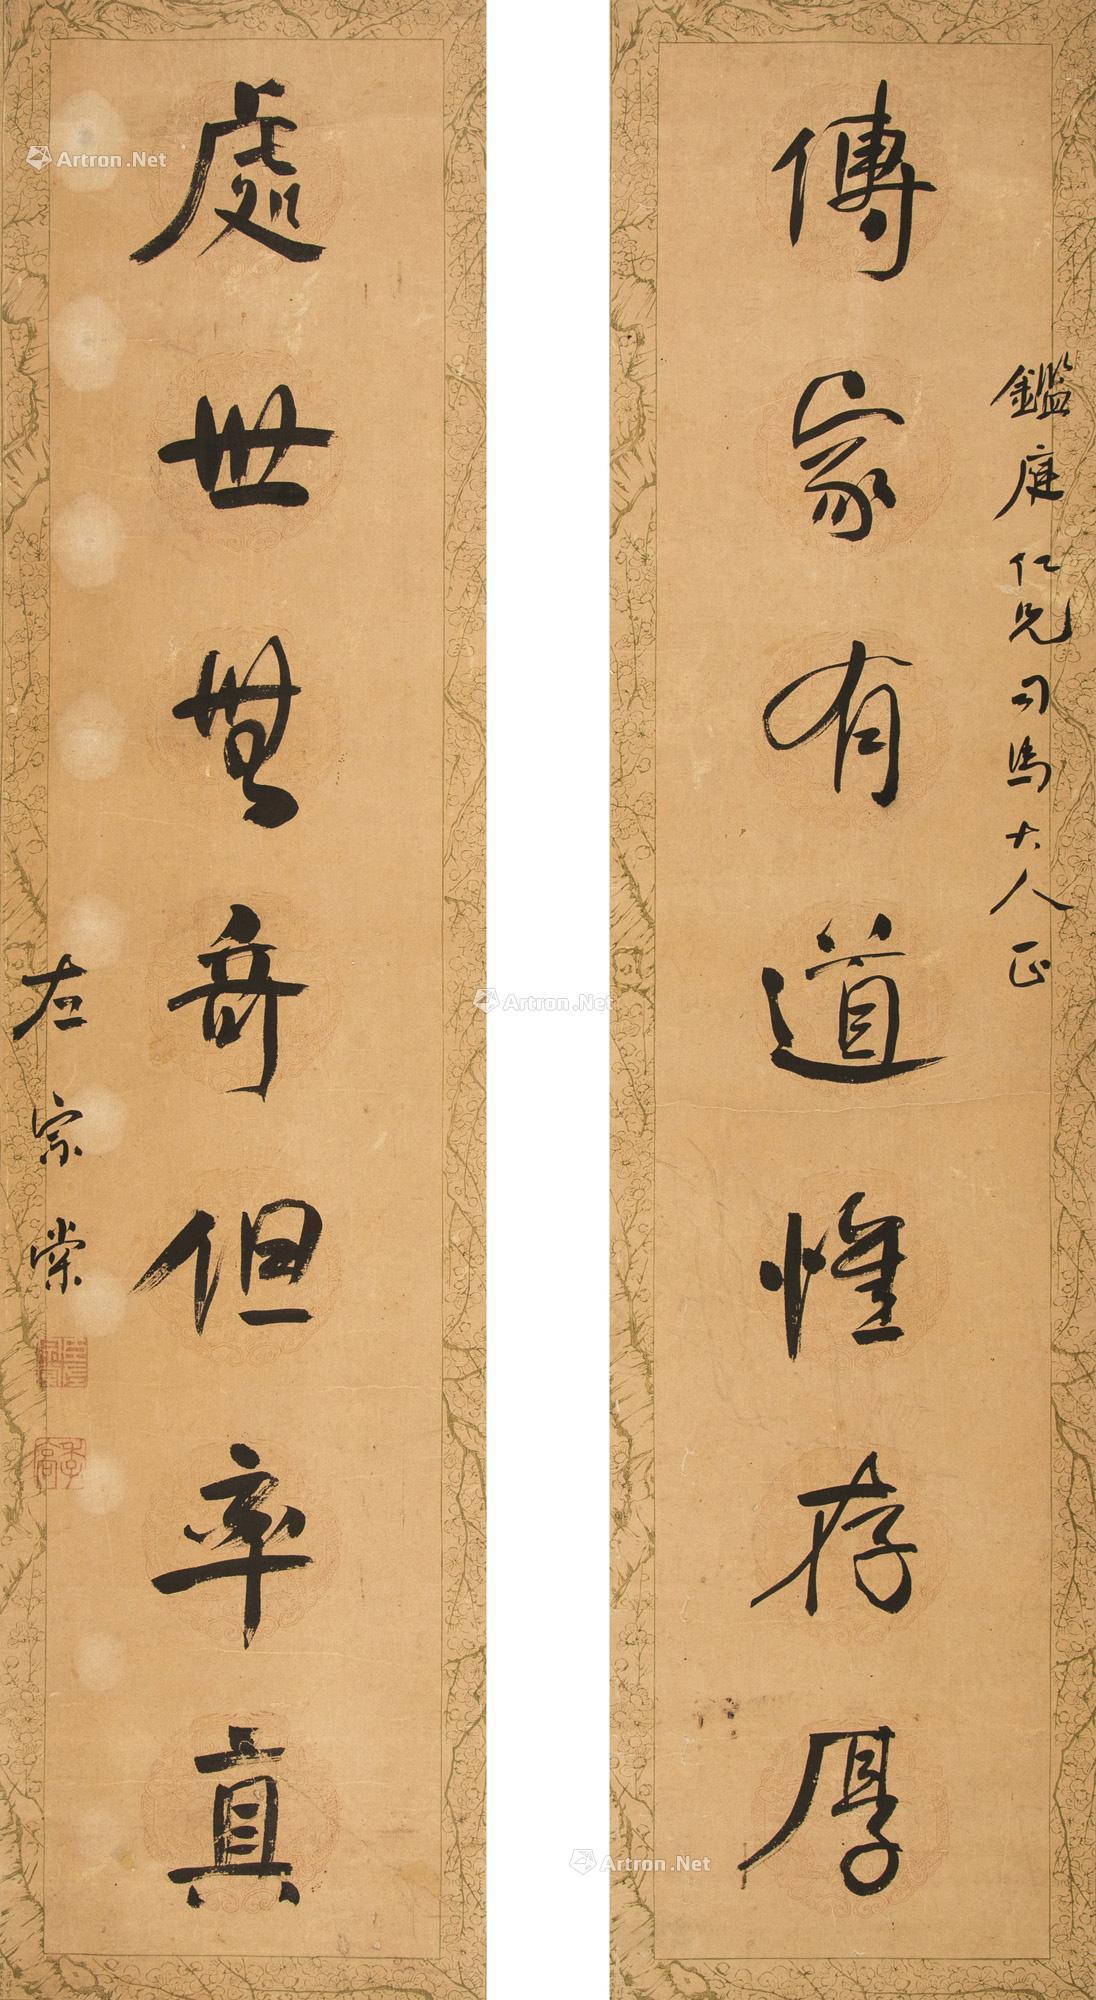 鑑庭仁兄司馬大人正
傳家有道惟存厚
處世無奇但率真
左宗棠
Artron.Net
Artron.Net
Artron.Net